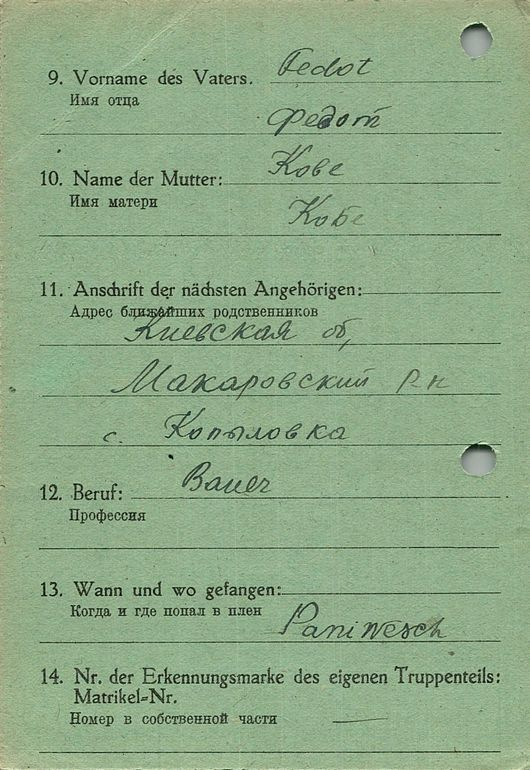 9. Vorname des Vaters. Fedot
Имя отца
Федот
10. Name der Mutter: Kobe
Имя матери
Кобе
11. Anschrift der nächsten Angehörigen:
Адрес ближайших родственников
Киевская об,
Макаровский р-н
с. Копыловка
12. Beruf: Bauer
Профессия
13. Wann und wo gefangen:
Когда и где попал в плен
Paniwesch
14. Nr. der Erkennungsmarke des eigenen Truppenteils:
Matrikel-Nr.
Номер в собственной части —